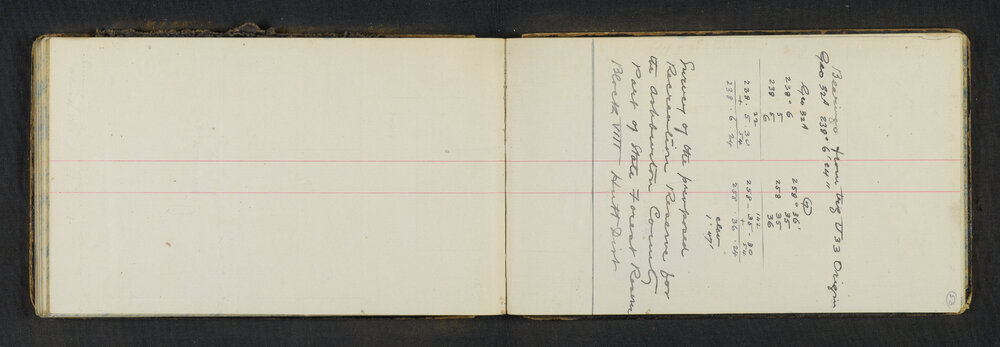 53
Bearings from trig U33 Origin
Geo 32A 238° 6' 24"
Geo 32A
238° 6
5
238 5
6
22
238 . 5 . 30
+ 54
238 . 6 . 24
258° 36'
35
258 35
36
142
258 - 35 . 30
+ 54
258 36 . 24
elev
1° 47'
Survey of the proposed
Recreation Reserve for
the Ashburton County
Part of State Forest Reserve
Block VIII Hutt Dist